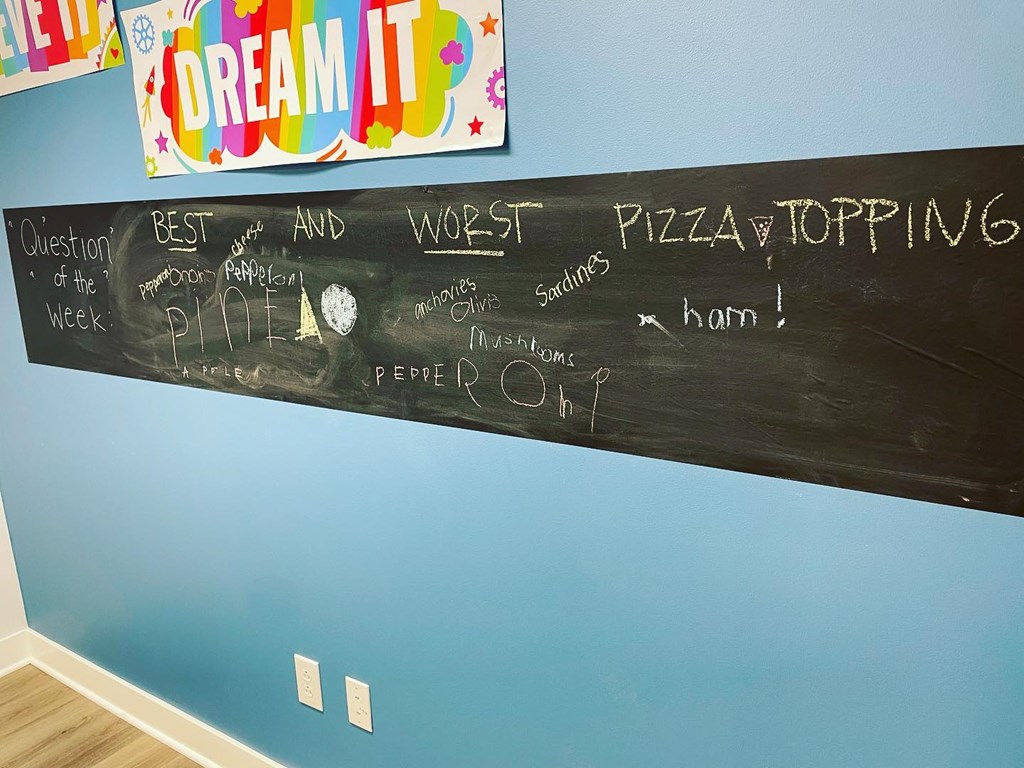 EVE IT
DREAM IT
"Question"
"of the"
Week:
BEST AND WORST PIZZA TOPPING
cheese
pepperoni
Pepperoni
PINE
APPLE
anchovies
Olivis
Sardines
Mushrooms
PEPPERONY
ham!